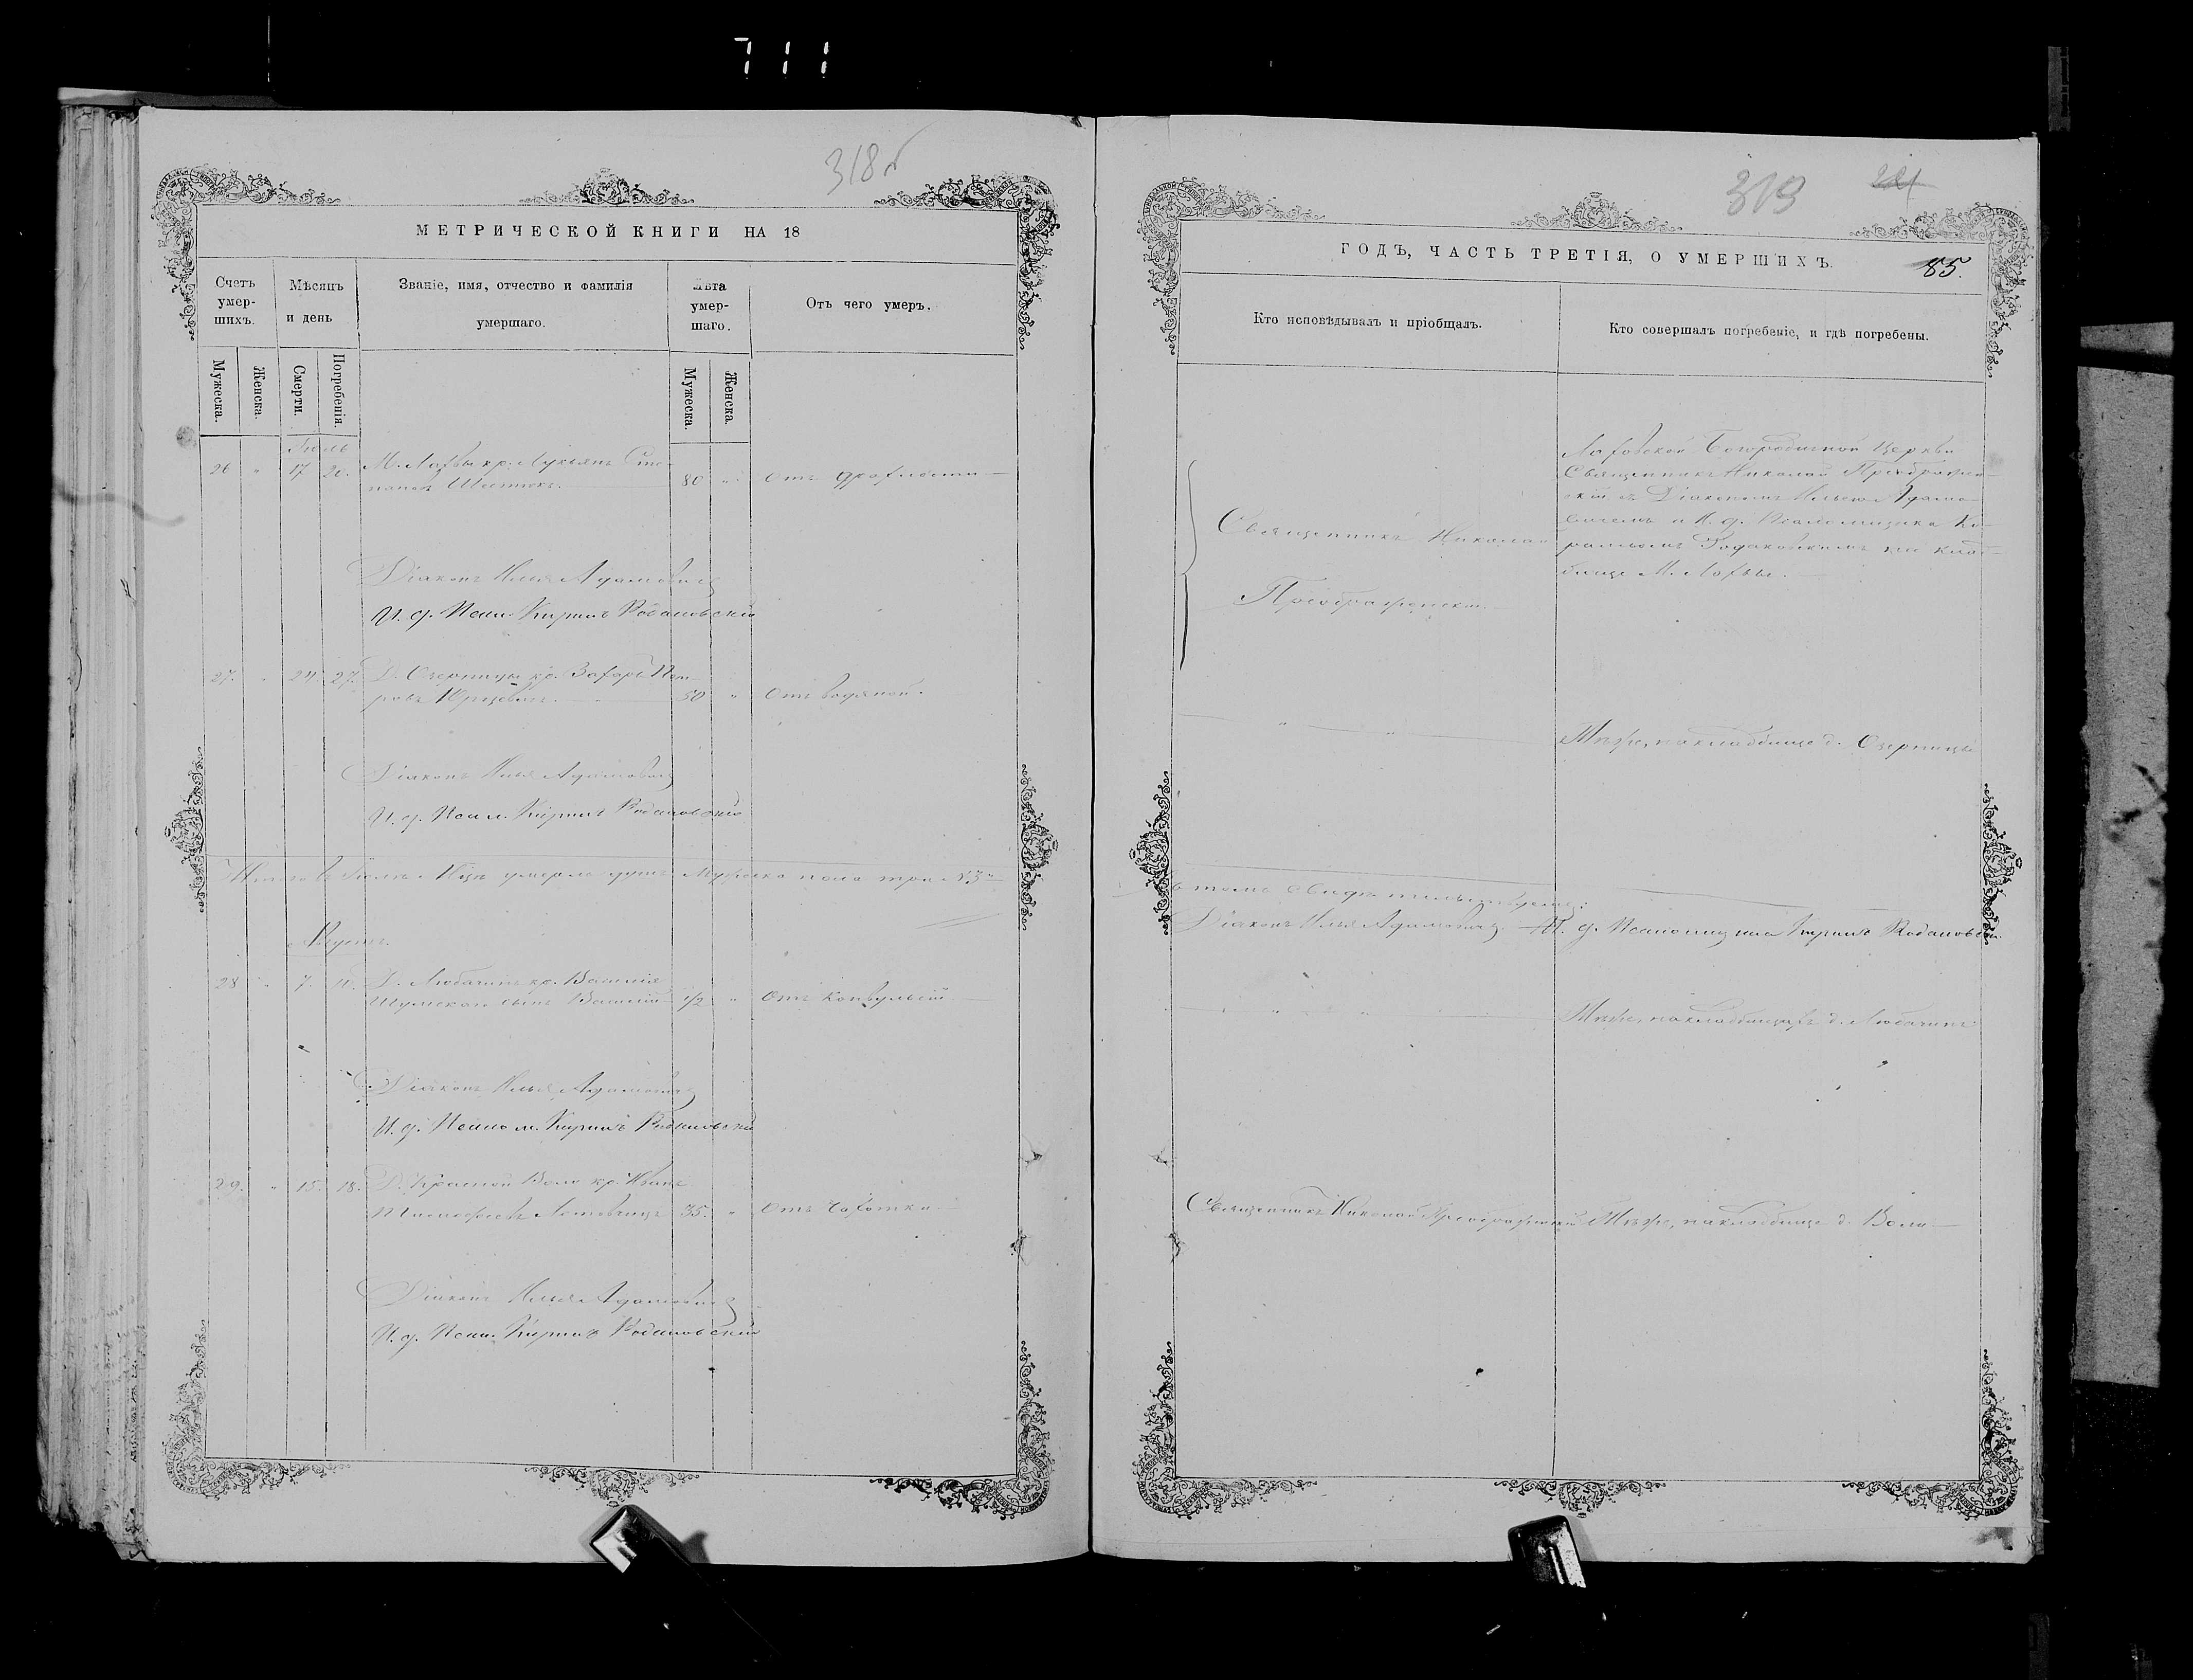 711
318 об
МЕТРИЧЕСКОЙ КНИГИ НА 18
Счетъ умер-шихъ.
Мѣсяцъ и день
Званіе, имя, отчество и фамилія умершаго.
Лѣта умер-шаго.
Отъ чего умеръ.
Мужеска.
Женска.
Смерти.
Погребенія.
Мужеска.
Женска.
Іюль
26 " 17 20. М. Лахвы кр. Лукьянъ Сте-
пановъ 80 " Отъ дряхлости
Діаконъ Илья Адамовичъ
И. д. Псал. Кириллъ Родаковскій
27. " 24. 27. Д. Озерницы кр. Захаръ Пет-
ровъ Юрцевичъ 50 " Отъ водяной.
Діаконъ Илья Адамовичъ
И. д. Псал. Кириллъ Родаковскій
Итого въ Іюлѣ М-цѣ умерло душъ Мужеска пола три №3
Августъ.
28 " 7. 10. Д. Любачинъ кр. Василія
Шумскаго сынъ Василій 1/2 " Отъ конвульсій
Діаконъ Илья Адамовичъ
И. д. Псалом. Кириллъ Родаковскій
29. " 15. 18. Д. Красной Воли кр. Иванъ
Тимофеевъ 35. " Отъ чахотки.
Діаконъ Илья Адамовичъ
И. д. Псал. Кириллъ Родаковскій
319
ГОДЪ, ЧАСТЬ ТРЕТІЯ, О УМЕРШИХЪ.
85.
Кто исповѣдывалъ и пріобщалъ.
Кто совершалъ погребеніе, и гдѣ погребены.
Священникъ Николай
Преображенскій
Лахвовской Богородичной Церкви
Священникъ Николай Преображен-
скій съ Діакономъ Ильею Адамо-
вичемъ и И. д. Псаломщика Ки-
рилломъ Родаковскимъ на клад-
бищѣ М. Лахвы.
" " Тѣже, на кладбище д. Озерницы
въ томъ свидѣтельствуемъ:
Діаконъ Илья Адамовичъ. И. д. Псаломщика Кириллъ Родаковскій
" " " Тѣже, на кладбище д. Любачинъ
Священникъ Николай Преображенскій Тѣже, на кладбище д. Воли